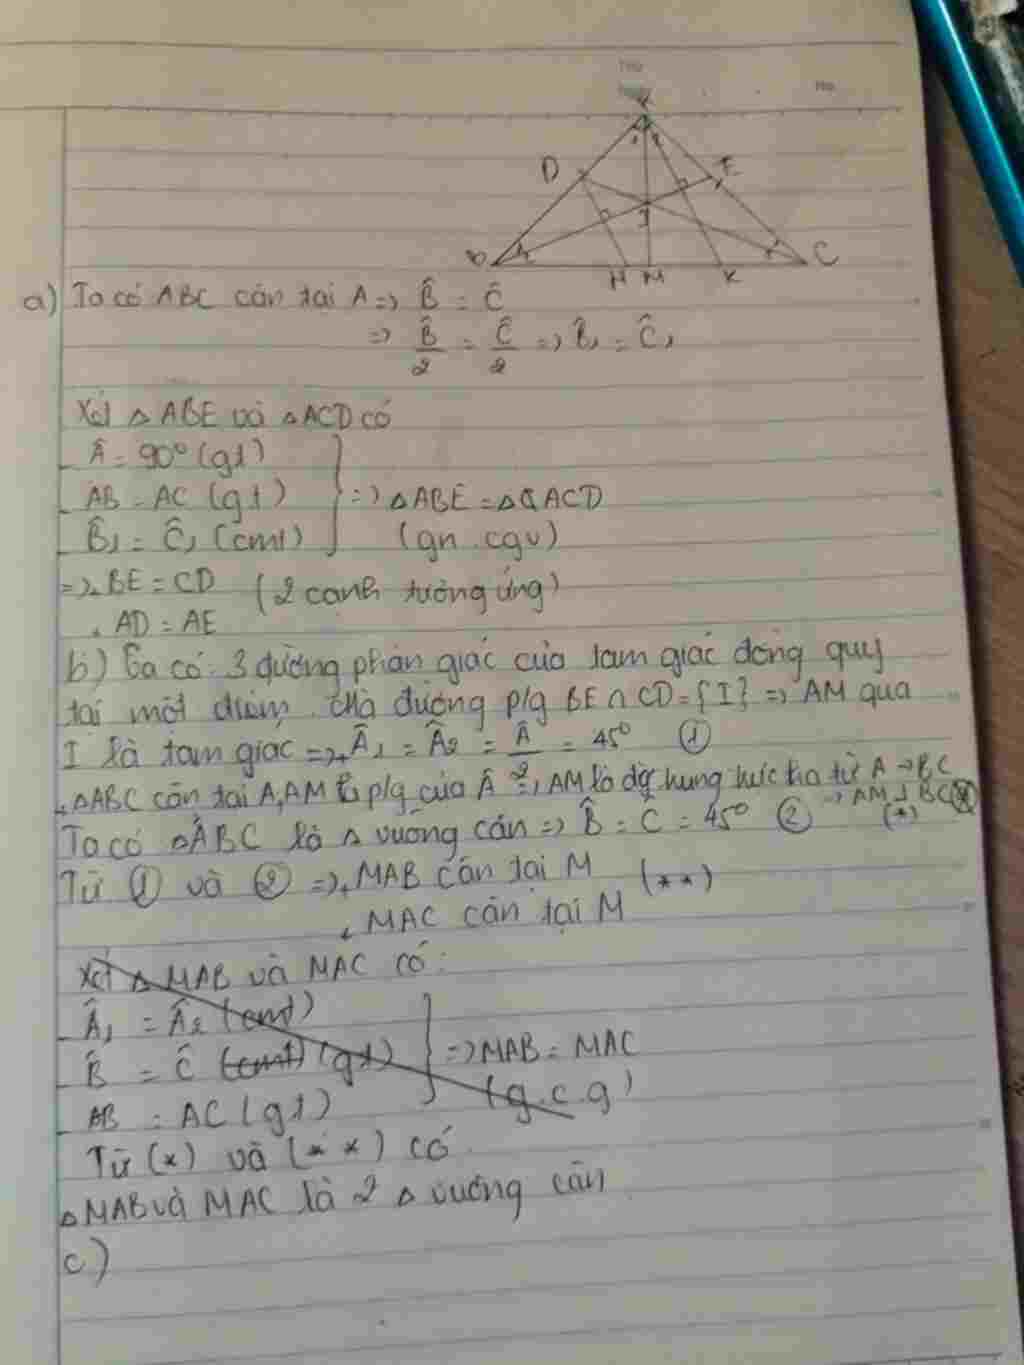 Thứ
Ngày
No.
A
D
E
1 2
I
B
C
H M K
a) Ta có ABC cân tại A => B̂ = Ĉ
=> B̂/2 = Ĉ/2 => B̂₁ = Ĉ₁
Xét △ ABE và △ACD có
Â = 90° (gt)
AB = AC (gt) } => △ABE = △ ACD
B̂₁ = Ĉ₁ (cmt) (gn. cgv)
=> BE = CD (2 cạnh tương ứng)
AD = AE
b) Ta có 3 đường phân giác của tam giác đồng quy
tại một điểm. Mà đường p/g BE ∩ CD = {I} => AM qua
I là tam giác => Â₁ = Â₂ = Â/2 = 45° ①
△ABC cân tại A, AM là p/g của Â => AM là đg trung trực từ A → BC
=> AM ⊥ BC (*)
Ta có △ABC là △ vuông cân => B̂ = Ĉ = 45° ②
Từ ① và ② => MAB cân tại M (**)
MAC cân tại M
Xét △ MAB và MAC có:
Â₁ = Â₂ (cmt)
B̂ = Ĉ (cmt) (gt) } => MAB = MAC
AB = AC (gt) (g.c.g)
Từ (*) và (**) có
△MAB và MAC là 2 △ vuông cân
c)